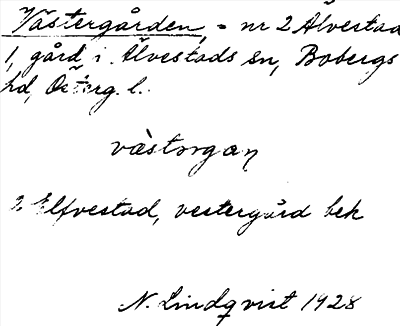 Västergården, = nr 2 Alvestad
1, gård i Alvestads sn, Bobergs
hd, Österg. l.
västərgan
2 Elfvestad, vestergård bek
N. Lindqvist 1928